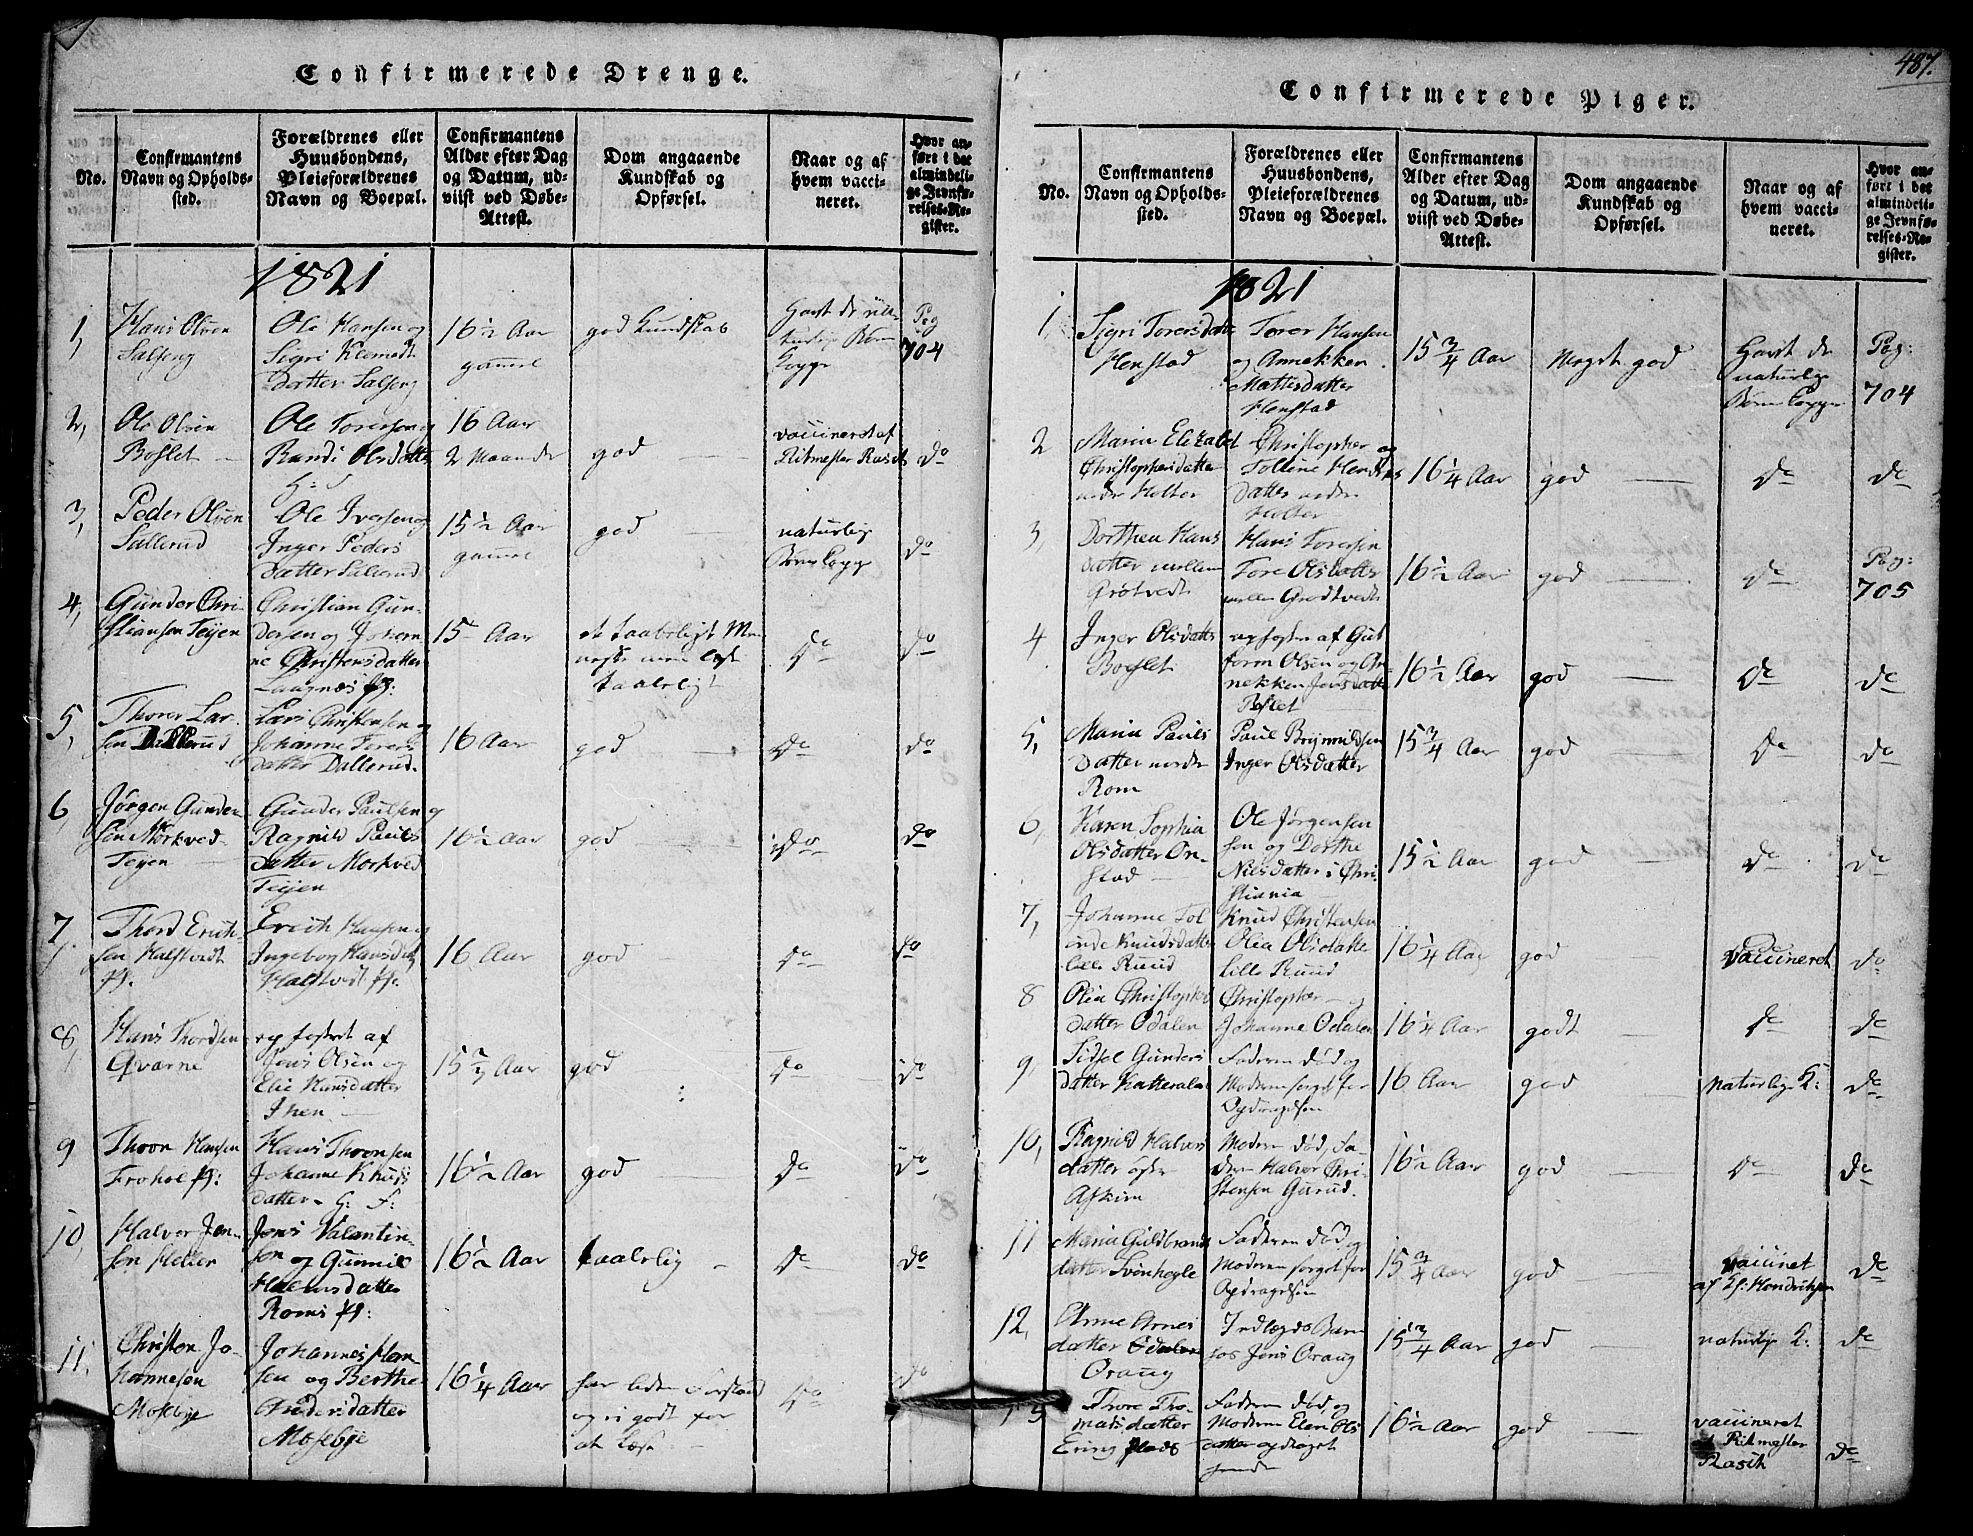 Confirmerede Drenge.
No.
Confirmantens
Navn og Opholds-
sted.
Forældrenes eller
Huusbondens,
Pleieforældrenes
Navn og Boepæl.
Confirmantens
Alder efter Dag
og Datum, ud-
viist ved Døbe-
Attest.
Dom angaaende
Kundskab og
Opførsel.
Naar og af
hvem vacci-
neret.
Hvor an-
ført i det
almindeli-
ge Jevnfø-
relses-Re-
gister.
1821
1,
Hans Olsen
Salseng
Ole Hansen og
Sigri Klemets
Datter Salseng
16 1/2 Aar
gamel
god Kundskab
Havt de
Kopper
Pag
704
2,
Ole Olsen
Bøslet
Ole Toresen og
Randi Olsdatter
16 Aar
2 Maaneder
god
vaccineret af
Ritmester
do
3,
Peder Olsen
Sallerud
Ole Iversen og
Inger Peders
Datter Sallerud
15 1/2 Aar
gamel
god
naturlig
Børne Kopp
do
4,
Gunder Chri-
stiansen Teijen
Christian Gun-
dersen og Johan-
ne Christensdatter
Langnæs
15 Aar
et taabeligt Me-
neske men
taaleligt
do
do
5,
Thorer Lar-
sen Dallerud
Lars Christensen og
Johanne Torers
datter Dallerud.
16 Aar
god
do
do
6,
Jørgen Gunder
sen Morkved
Teijen
Gunder Paulsen og
Ragnild Pauls
datter Morkved
Teijen
16 1/2 Aar
god
do
do
7,
Thord Erich-
sen Halstvedt
Erich Hansen og
Ingeborg Hansdatter
Halstvedt
16 Aar
god
do
do
8,
Hans Thordsen
Qvarne
opfostret af
Jens Olsen og
Elie Hansdatter
Ihlen
15 Aar
god
do
do
9
Thoon Hansen
Frohol
Hans Thoonsen
Johanne Knuds
datter G: F:
16 1/2 Aar
god
do
do
10,
Halvor Jen-
sen Heller
Jens Valentin-
sen og Gunnil
Halvorsdatter
Roms
16 1/2 Aar
taalelig
do
do
11,
Christen Jo-
hannesen
Mosebye
Johannes Han-
sen og Berthe
Andersdatter
Mosebye
16 1/4 Aar
har liden Forstand
og ei godt for
at læse
do
do
487.
Confirmerede Piger.
No.
Confirmantens
Navn og Opholds-
sted.
Forældrenes eller
Huusbondens,
Pleieforældrenes
Navn og Boepæl.
Confirmantens
Alder efter Dag
og Datum, ud-
viist ved Døbe-
Attest.
Dom angaaende
Kundskab og
Opførsel.
Naar og af
hvem vacci-
neret.
Hvor an-
ført i det
almindeli-
ge Jevnfø-
relses-Re-
gister.
1821
1,
Sigri Torersdatter
Henstad
Torer Hansen
og Annekken
Mattesdatter
Henstad
15 3/4 Aar
Meget god
Havt de
naturlige
Børne Kopper
Pag:
704
2
Maria Elisabet
Christophersdatter
neder Holter
Christopher og
Tolline
Datter neder
Holter
16 1/4 Aar
god
do
do
3,
Dorthea Hans
datter mellem
Grøtvedt
Hans Toresen
Tore Olsdatter
mellem Grødtvedt
16 1/2 Aar
god
do
Pag:
705
4
Inger Olsdatter
Bøslet
opfostret af Gut
torm Olsen og An-
nekken Jensdatter
Bøslet
16 1/2 Aar
god
do
do
5,
Maria Pauls
datter nordre
Rom
Paul Brynnildsen
Inger Olsdatter
15 3/4 Aar
god
do
do
6,
Karen Sophia
Olsdatter On-
stad
Ole Jørgensen
sen og Dorthe
Nilsdatter i Chri-
stiania
15 1/2 Aar
god
do
do
7,
Johanne Tol
Knudsdatter
lille Ruud
Knud Christensen
Olia Olsdatter
lille Ruud
16 1/4 Aar
god
vaccineret
do
8
Olia Christophers
datter Odalen
Christopher og
Johanne Odalen
16 1/4 Aar
godt
do
do
9,
Sidsel Gunders
datter
Faderen død og
Moderen sørget for
Opdragelsen
16 Aar
god
naturlige K:
do
10,
Ragnild Halvors
datter østre
Askim
Moderen død, Fa-
deren Halvor Chri-
stensen Gurud.
16 1/2 Aar
god
do
do
11
Maria Guldbrands
datter Svenhøgle
Faderen død og
Moderen sørget for
Opdragelsen
15 3/4 Aar
god
vaccinet
af Hendriksen
do
12,
Anne Arnes
datter Odalen
Oraug
Indlagds Barn
hos Jens Oraug
15 3/4 Aar
god
naturlig K:
do
13
Thore Tho-
mas datter
Ering
Faderen død, og
Moderen Elen Ols
datter opdraget
hende
16 1/2 Aar
god
vaccineret
af Ritmester
do